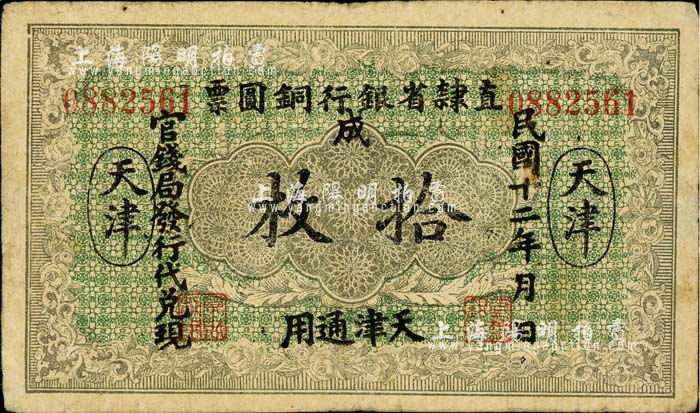 上海陽明拍賣
直隸省銀行銅圓票
0882561
0882561
成
拾枚
民國十二年月日
天津
天津
官錢局發行代兌現
天津通用
上海陽明拍賣
www.yangmingauction.com
上海陽明拍賣